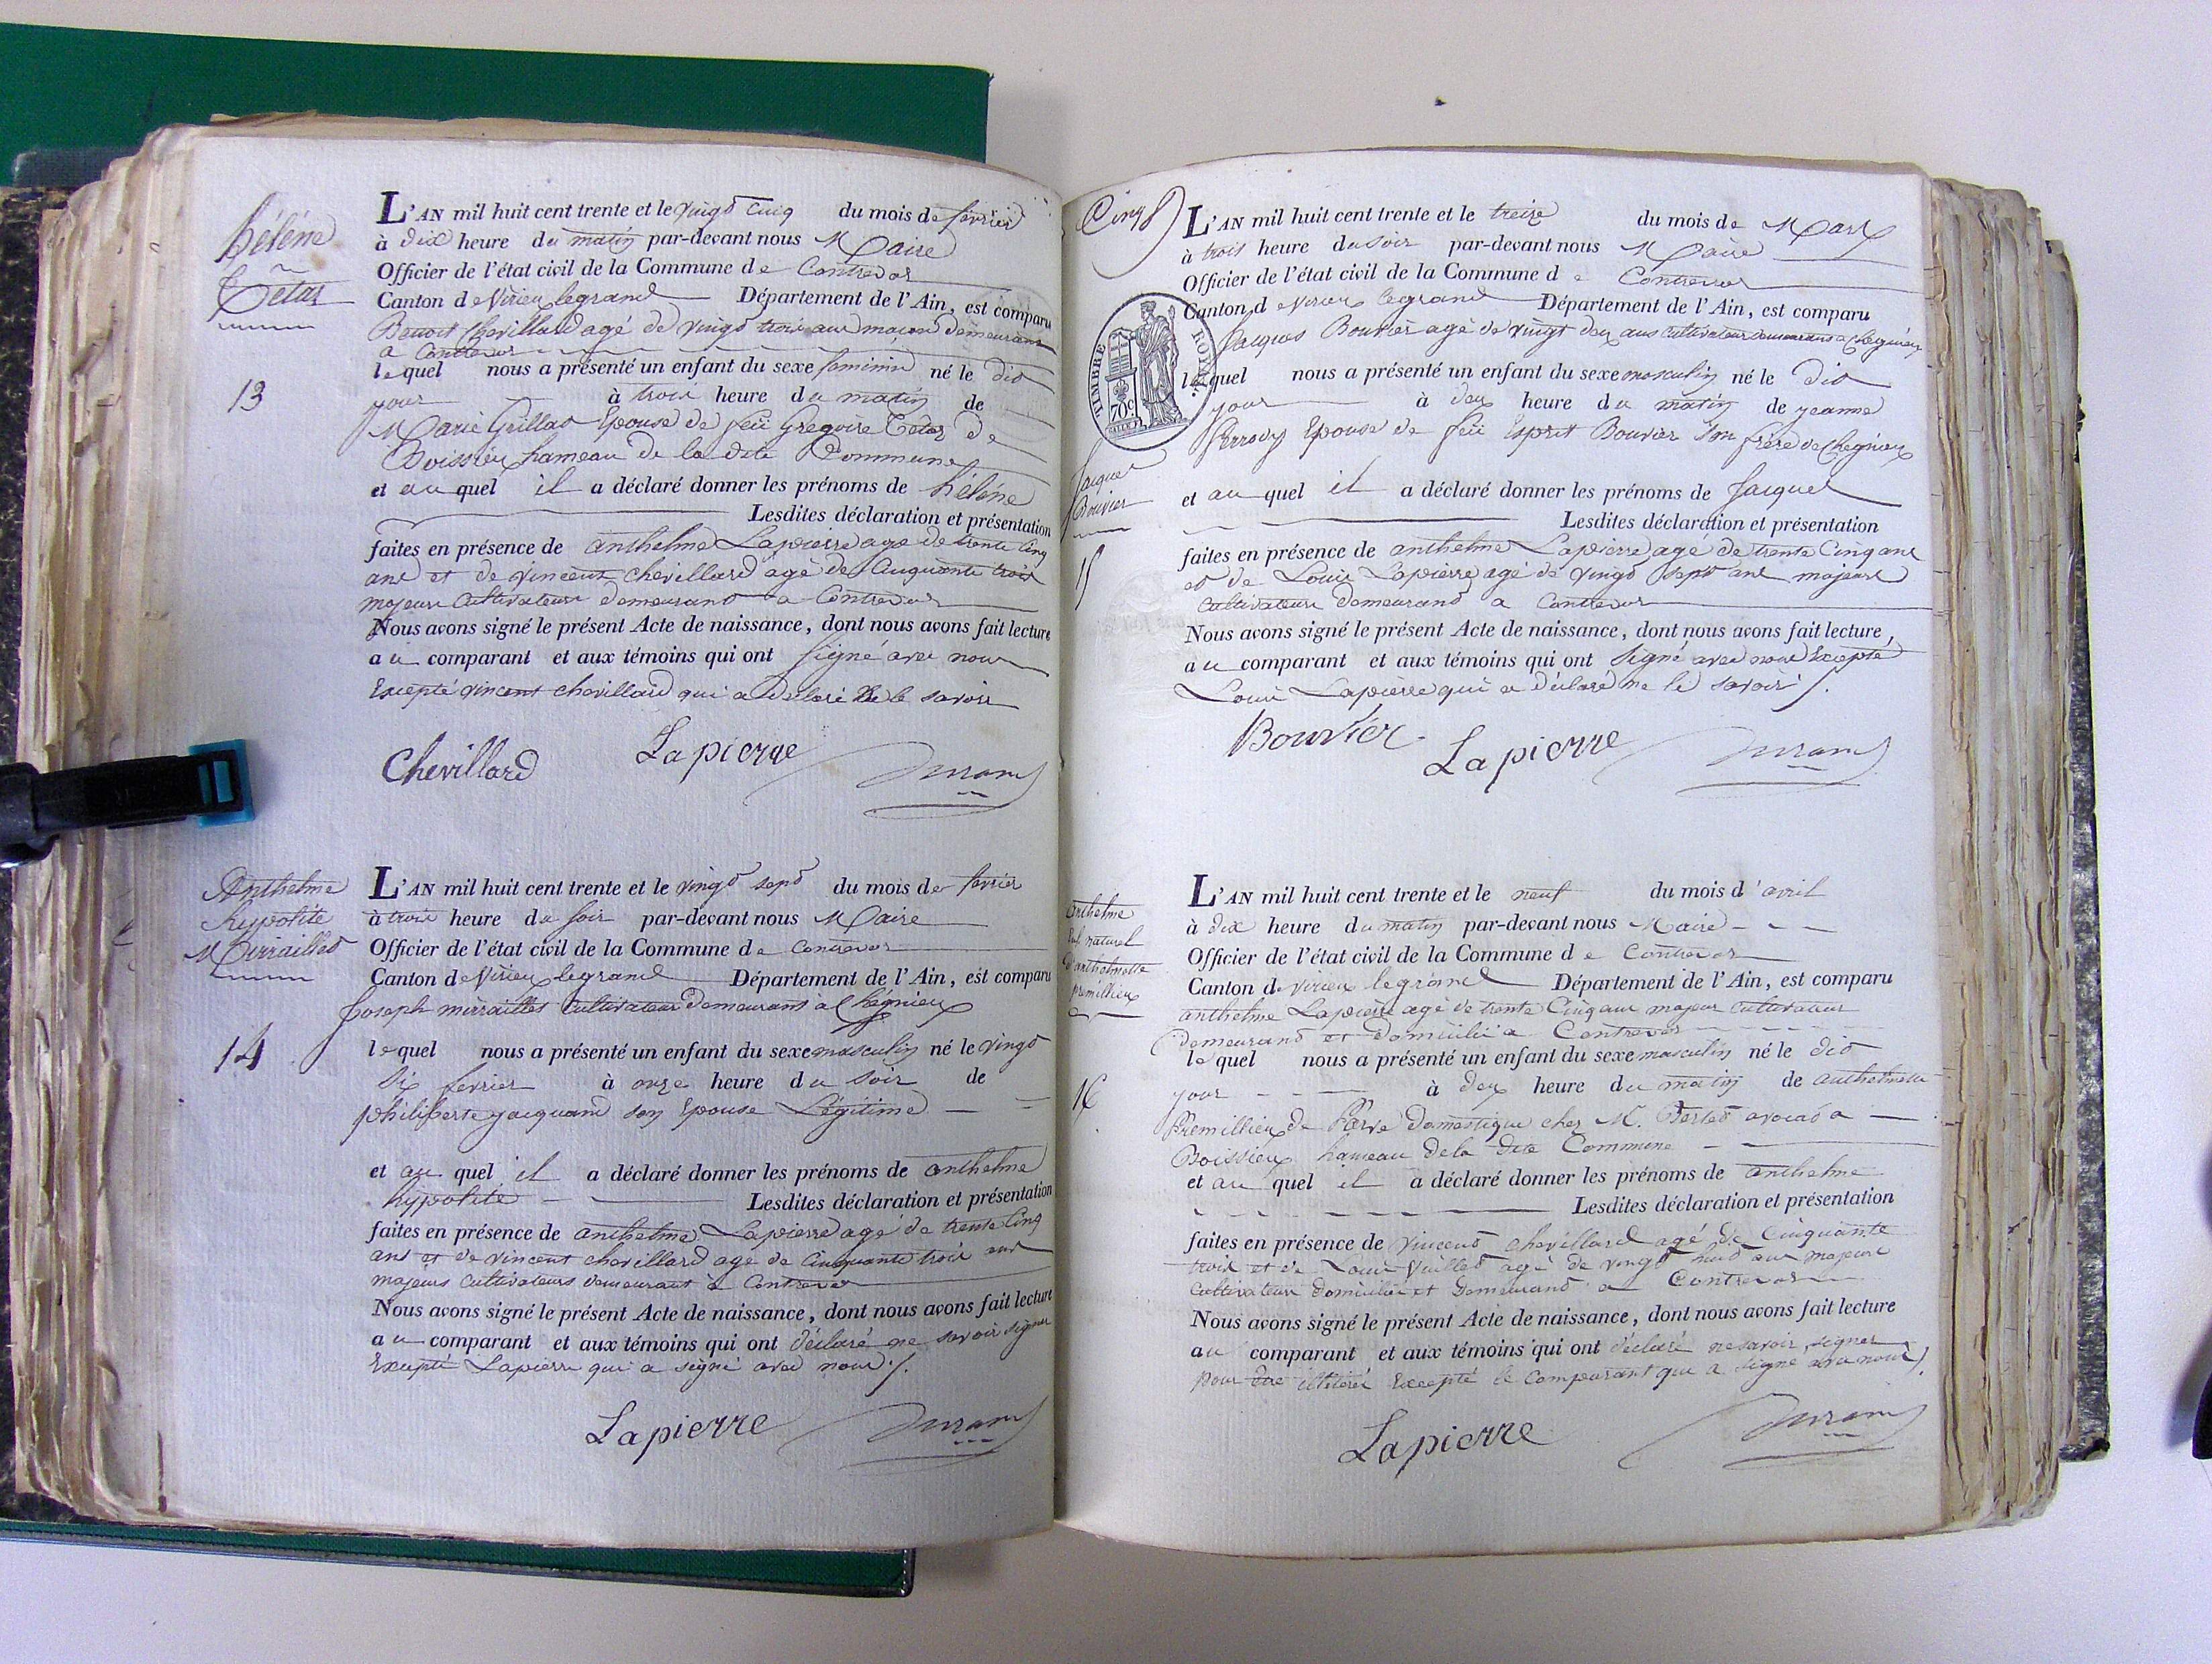 hélène
Tétaz
13
L'AN mil huit cent trente et le vingt cinq du mois de fevrier
à dix heure du matin par-devant nous Maire
Officier de l'état civil de la Commune de Contrevoz
Canton de Virieu legrand Département de l'Ain, est comparu
Benoit Chevillard agé de vingt trois ans maçon demeurant
a Contrevoz
lequel nous a présenté un enfant du sexe feminin né le dit
jour à trois heure du matin de
Marie Grillat Epouse de feü Gregoire Tétaz de
Boissieu hameau de la dite Commune
et au quel il a déclaré donner les prénoms de hélène
Lesdites déclaration et présentation
faites en présence de anthelme Lapierre agé de trente Cinq
ans et de vincent chevillard agé de Cinquante trois
majeurs Cultivateurs demeurant a Contrevoz
Nous avons signé le présent Acte de naissance, dont nous avons fait lecture
au comparant et aux témoins qui ont signé avec nous
Excepté vincent chevillard qui a déclaré ne le savoir
Chevillard Lapierre Durand
Anthelme
hypolite
Mirraillet
14
L'AN mil huit cent trente et le vingt sept du mois de fevrier
à trois heure du soir par-devant nous Maire
Officier de l'état civil de la Commune de Contrevoz
Canton de Virieu legrand Département de l'Ain, est comparu
Joseph mirraillet Cultivateur demeurant à Chégnieu
lequel nous a présenté un enfant du sexe masculin né le vingt
six fevrier à onze heure du soir de
philiberte jacquand son Epouse Légitime
et au quel il a déclaré donner les prénoms de anthelme
hypolite Lesdites déclaration et présentation
faites en présence de anthelme Lapierre agé de trente Cinq
ans et de vincent chevillard agé de Cinquante trois ans
majeurs Cultivateurs demeurant à Contrevoz
Nous avons signé le présent Acte de naissance, dont nous avons fait lecture
au comparant et aux témoins qui ont déclaré ne savoir signer
Excepté Lapierre qui a signé avec nous ./.
Lapierre Durand
Cinq
TIMBRE ROYAL
70c
Jacques
Bouvier
15
L'AN mil huit cent trente et le treize du mois de Mars
à trois heure du soir par-devant nous Maire
Officier de l'état civil de la Commune de Contrevoz
Canton de Virieu legrand Département de l'Ain, est comparu
Jacques Bouvier agé de vingt deux ans Cultivateur demeurant a Chegnieu
lequel nous a présenté un enfant du sexe masculin né le dit
jour à deux heure du matin de jeanne
Perrody Epouse de feü Esprit Bouvier son frère de Chegnieu
et au quel il a déclaré donner les prénoms de Jacques
Lesdites déclaration et présentation
faites en présence de anthelme Lapierre agé de trente Cinq ans
et de Louis Lapierre agé de vingt sept ans majeurs
Cultivateurs demeurant a Contrevoz
Nous avons signé le présent Acte de naissance, dont nous avons fait lecture,
au comparant et aux témoins qui ont signé avec nous Excepté
Louis Lapierre qui a déclaré ne le savoir ./.
Bouvier Lapierre Durand
anthelme
enf. naturel
d'anthelmette
premillieu
16
L'AN mil huit cent trente et le neuf du mois d'avril
à dix heure du matin par-devant nous Maire
Officier de l'état civil de la Commune de Contrevoz
Canton de Virieu legrand Département de l'Ain, est comparu
anthelme Lapierre agé de trente Cinq ans majeur Cultivateur
demeurant et domicilié a Contrevoz
lequel nous a présenté un enfant du sexe masculin né le dit
jour à deux heure du matin de anthelmette
Premillieu de domestique chez M. avocat a
Boissieu hameau de la dite Commune
et au quel il a déclaré donner les prénoms de anthelme
Lesdites déclaration et présentation
faites en présence de vincent chevillard agé de Cinquante
trois et de Louis agé de vingt huit ans majeurs
Cultivateurs domiciliés et demeurant a Contrevoz
Nous avons signé le présent Acte de naissance, dont nous avons fait lecture
au comparant et aux témoins qui ont déclaré ne savoir signer
pour être illitérés Excepté le comparant qui a signé avec nous ./.
Lapierre Durand